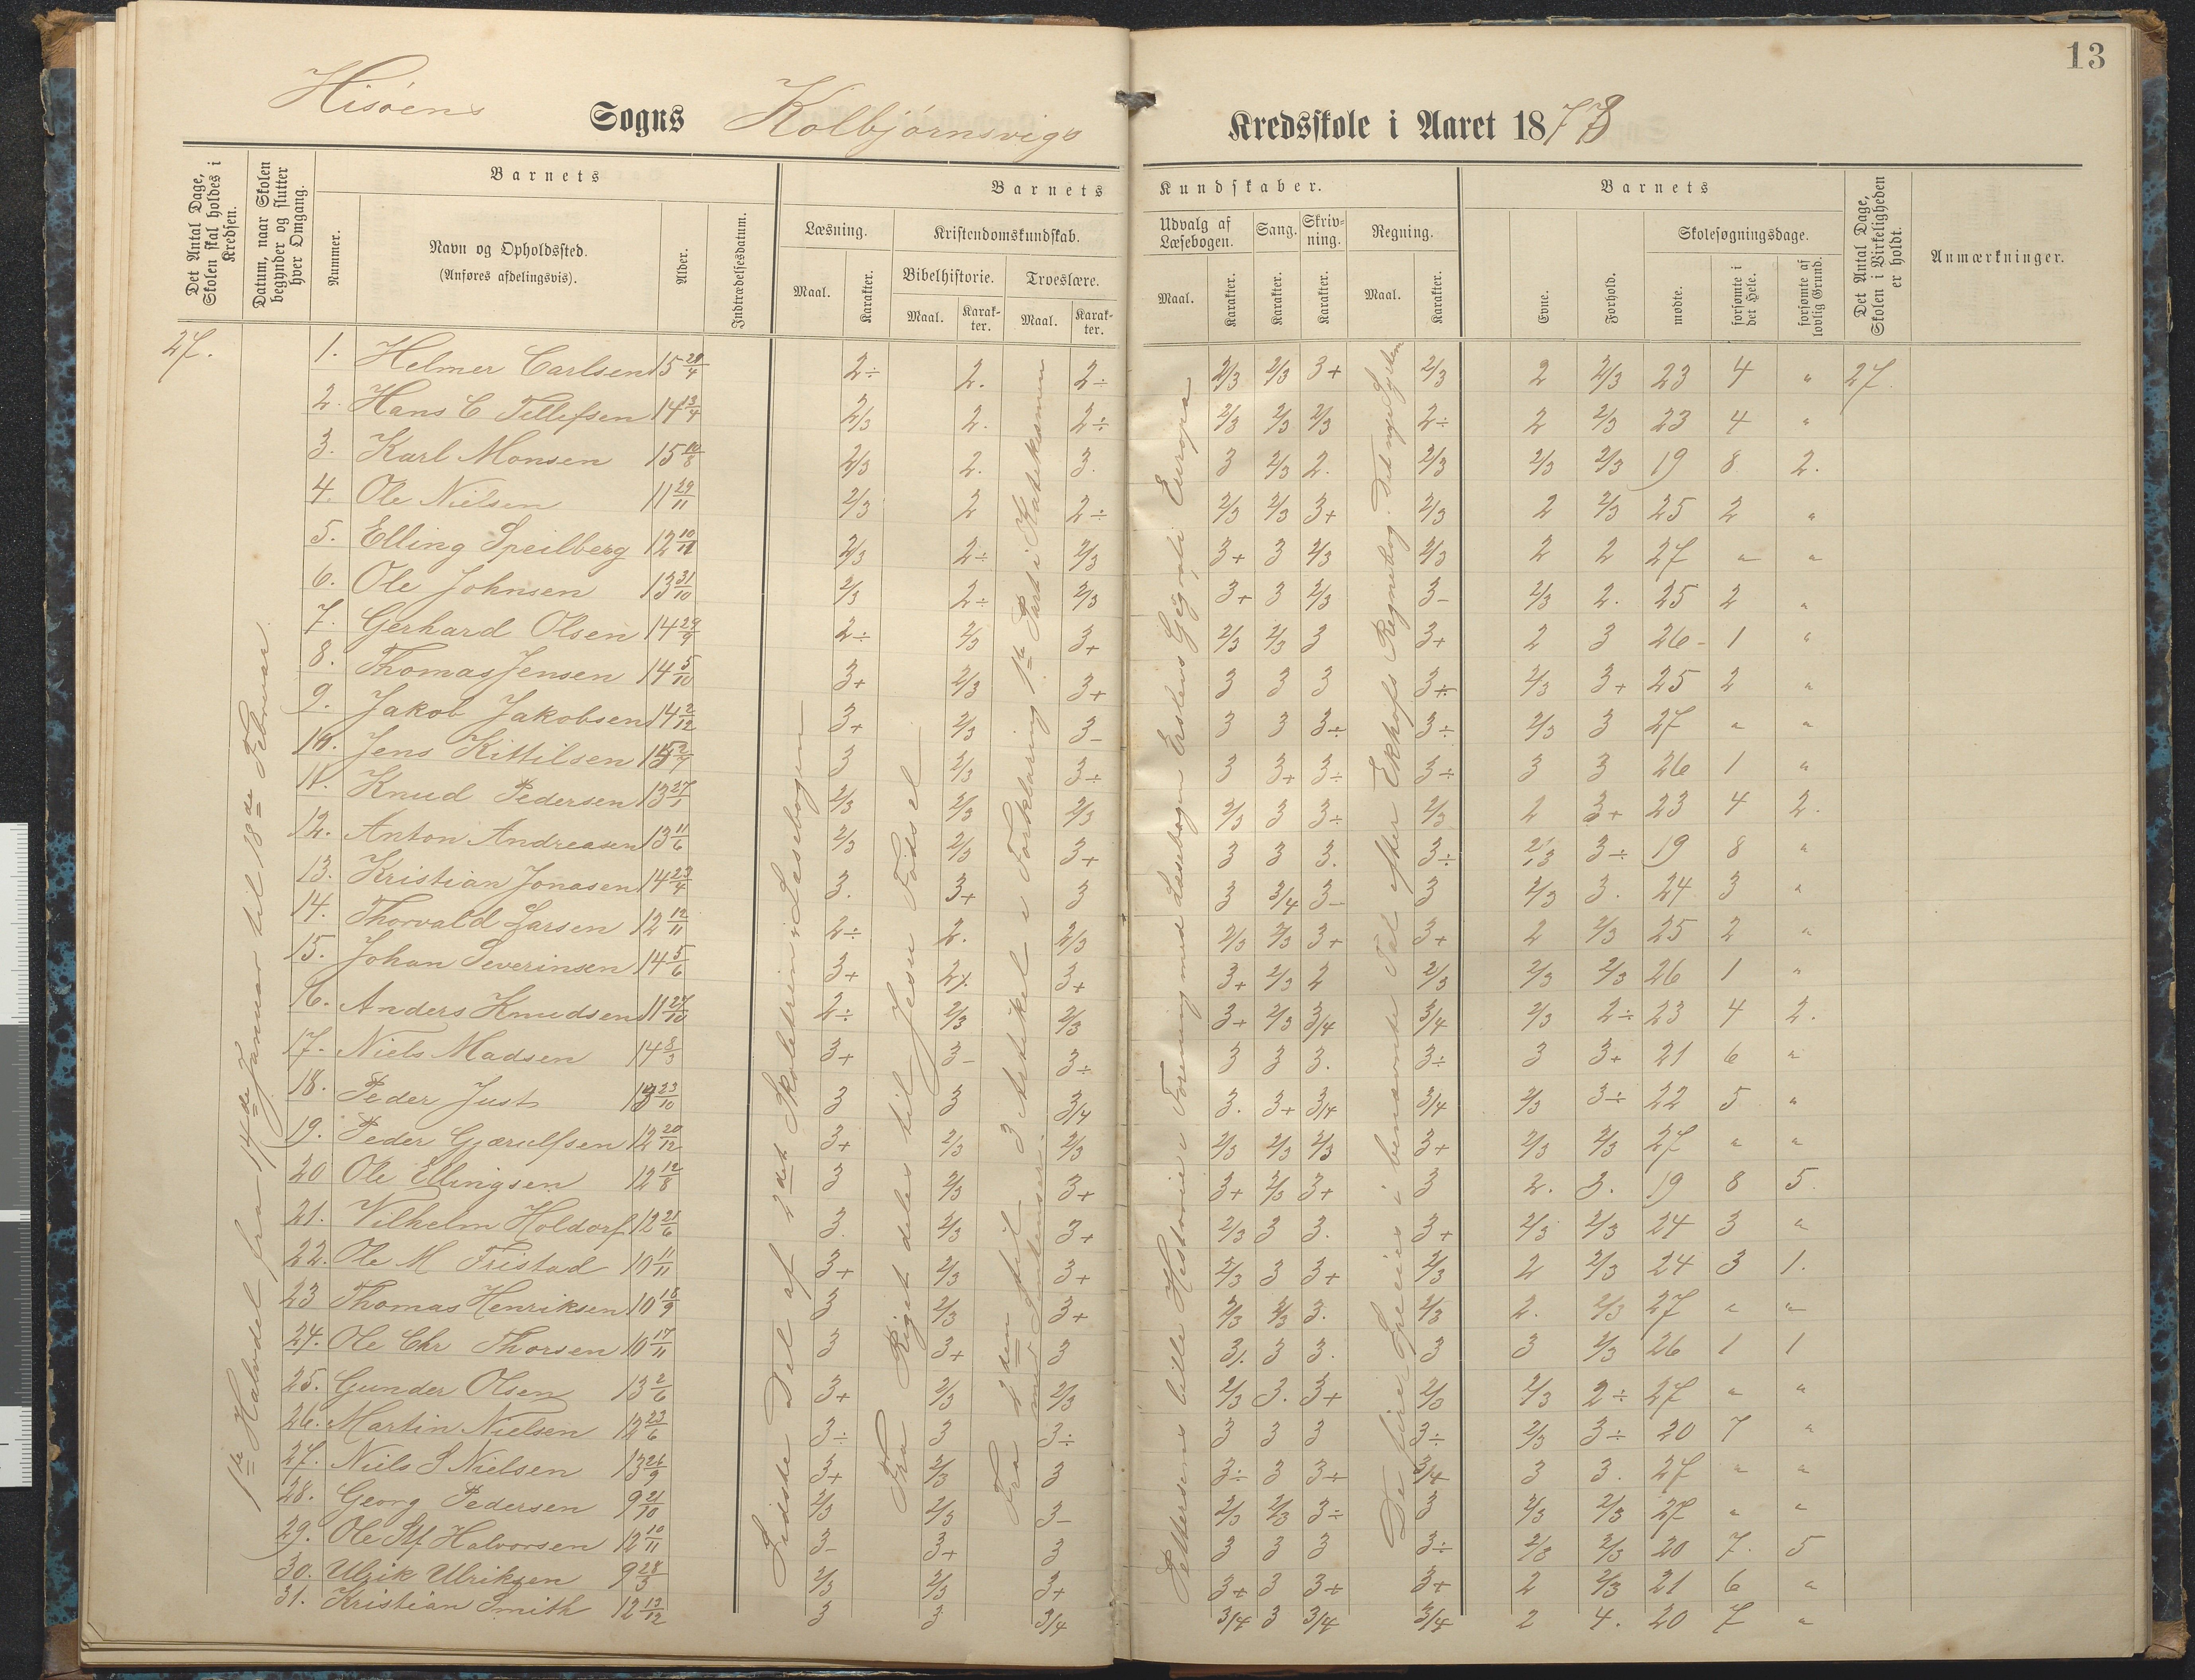 13
Hisøens Sogns Kolbjørnsvigs Kredsskole i Aaret 1873
Det Antal Dage, Skolen skal holdes i Kredsen.
Datum, naar Skolen begynder og slutter hver Omgang.
Barnets
Nummer.
Navn og Opholdssted.
(Anføres afdelingsvis).
Alder.
Indtrædelsesdatum.
Barnets Kundskaber.
Læsning.
Maal.
Karakter.
Kristendomskundskab.
Bibelhistorie.
Maal.
Karakter.
Troeslære.
Maal.
Karakter.
Udvalg af Læsebogen.
Maal.
Karakter.
Sang.
Karakter.
Skrivning.
Karakter.
Regning.
Maal.
Karakter.
Barnets
Evne.
Forhold.
Skolesøgningsdage.
mødte.
forsømte i det Hele.
forsømte af lovlig Grund.
Det Antal Dage, Skolen i Virkeligheden er holdt.
Anmærkninger.
27.
1ste Halvdel fra 14de Januar til 18de Februar.
Sidste Del af 2det Skoletrin i Læsebogen
Fra Riget deles til Jesu Fødsel
Fra 2den til 3 Artikel i Forklaring
Pettersens lille Historie i Forening med Læsebogen Erslevs Geografi Europa
De fire Species i benævnte Tal efter Ekhofs Regnebog.
1. Helmer Carlsen 15 20/4 2÷ 2. 2÷ 2/3 2/3 3+ 2/3 2 2/3 23 4 " 27.
2. Hans C Tellefsen 14 13/4 2/3 2. 2÷ 2/3 2/3 2/3 2÷ 2 2/3 23 4 "
3. Karl Monsen 15 10/8 2/3 2. 3. 3 2/3 2. 2/3 2/3 2/3 19 8 2.
4. Ole Nielsen 11 29/11 2/3 2 2÷ 2/3 2/3 3+ 2/3 2 2/3 25 2 "
5. Elling Speilberg 12 10/11 2/3 2÷ 2/3 3+ 3 2/3 2/3 2 2 27 " "
6. Ole Johnsen 13 31/10 2/3 2÷ 2/3 3+ 3 2/3 3- 2/3 2. 25 2 "
7. Gerhard Olsen 14 29/9 2÷ 2/3 3+ 2/3 2/3 3 3+ 2 3 26 1 "
8. Thomas Jensen 14 5/10 3+ 2/3 3+ 3 3 3 3÷ 2/3 3+ 25 2 "
9. Jakob Jakobsen 14 2/12 3+ 2/3 3- 3 3 3÷ 3÷ 2/3 3 27 " "
10. Jens Kittilsen 2/9 3 2/3 3÷ 3 3+ 3÷ 3÷ 3 3 26 1 "
11. Knud Pedersen 13 27/1 2/3 2/3 2/3 2/3 3 3÷ 2/3 2 3+ 23 4 2.
12. Anton Andreasen 13 11/6 2/3 2/3 3+ 3 3 3. 3÷ 2/3 3÷ 19 8 "
13. Kristian Jonasen 14 23/4 3. 3+ 3 3 3/4 3- 3 2/3 3. 24 3 "
14. Thorvald Larsen 12 12/11 2÷ 2. 2/3 2/3 2/3 3+ 3+ 2 2/3 25 2 "
15. Johan Severinsen 14 5/6 3+ 2/. 3+ 3+ 2/3 2 2/3 2/3 2/3 26 1 "
16. Anders Knudsen 11 27/10 2÷ 2/3 2/3 3+ 2/3 3/4 3/4 2/3 2÷ 23 4 2.
17. Niels Madsen 14 8/3 3+ 3- 3÷ 3 3 3. 3÷ 3 3+ 21 6 "
18. Peder Just 13 23/10 3 3 3/4 3. 3+ 3/4 3/4 2/3 3÷ 22 5 "
19. Peder Gjærulfsen 12 20/12 3+ 2/3 2/3 2/3 2/3 2/3 3+ 2/3 2/3 27 " "
20 Ole Ellingsen 12 12/8 3 2/3 3+ 3+ 2/3 3+ 3 2. 3. 19 8 5
21. Vilhelm Holdorf 12 21/6 3. 2/3 3+ 2/3 3 3. 3+ 2/3 2/3 24 3 "
22. Ole M Fristad 10 11/11 3+ 2/3 3+ 2/3 3 3+ 2/3 2 2/3 24 3 1.
23 Thomas Henriksen 10 18/9 3 2/3 3+ 2/3 2/3 3. 2/3 2. 2/3 27 " "
24. Ole Chr Thorsen 10 17/11 3 3+ 3 3/. 3 3. 3 3 2/3 26 1 1
25. Gunder Olsen 13 2/6 3+ 2/3 2/3 2/3 3. 3+ 2/3 2/3 2÷ 27 " "
26. Martin Nielsen 12 23/6 3÷ 3 3÷ 3 3 3 3÷ 2/3 3÷ 20 7 "
27. Niels S Nielsen 13 26/9 3+ 2/3 3 3÷ 3 3÷ 3/4 3 3. 27 " "
28. Georg Pedersen 9 21/10 2/3 2/3 3- 2/3 2/3 3÷ 3 2/3 2/3 27 " "
29. Ole Stf Halvorsen 12 10/11 3- 3+ 3 3 3 3 3÷ 2/3 2/3 20 7. 5
30. Ulrik Ulriksen 9 28/3 2/3 2/3 3+ 3+ 3 3+ 3+ 2 2/3 21 6 "
31. Kristian Smith 12 13/12 3 3 3/4 3/4 3 3/4 3/4 2 4. 20 7 "